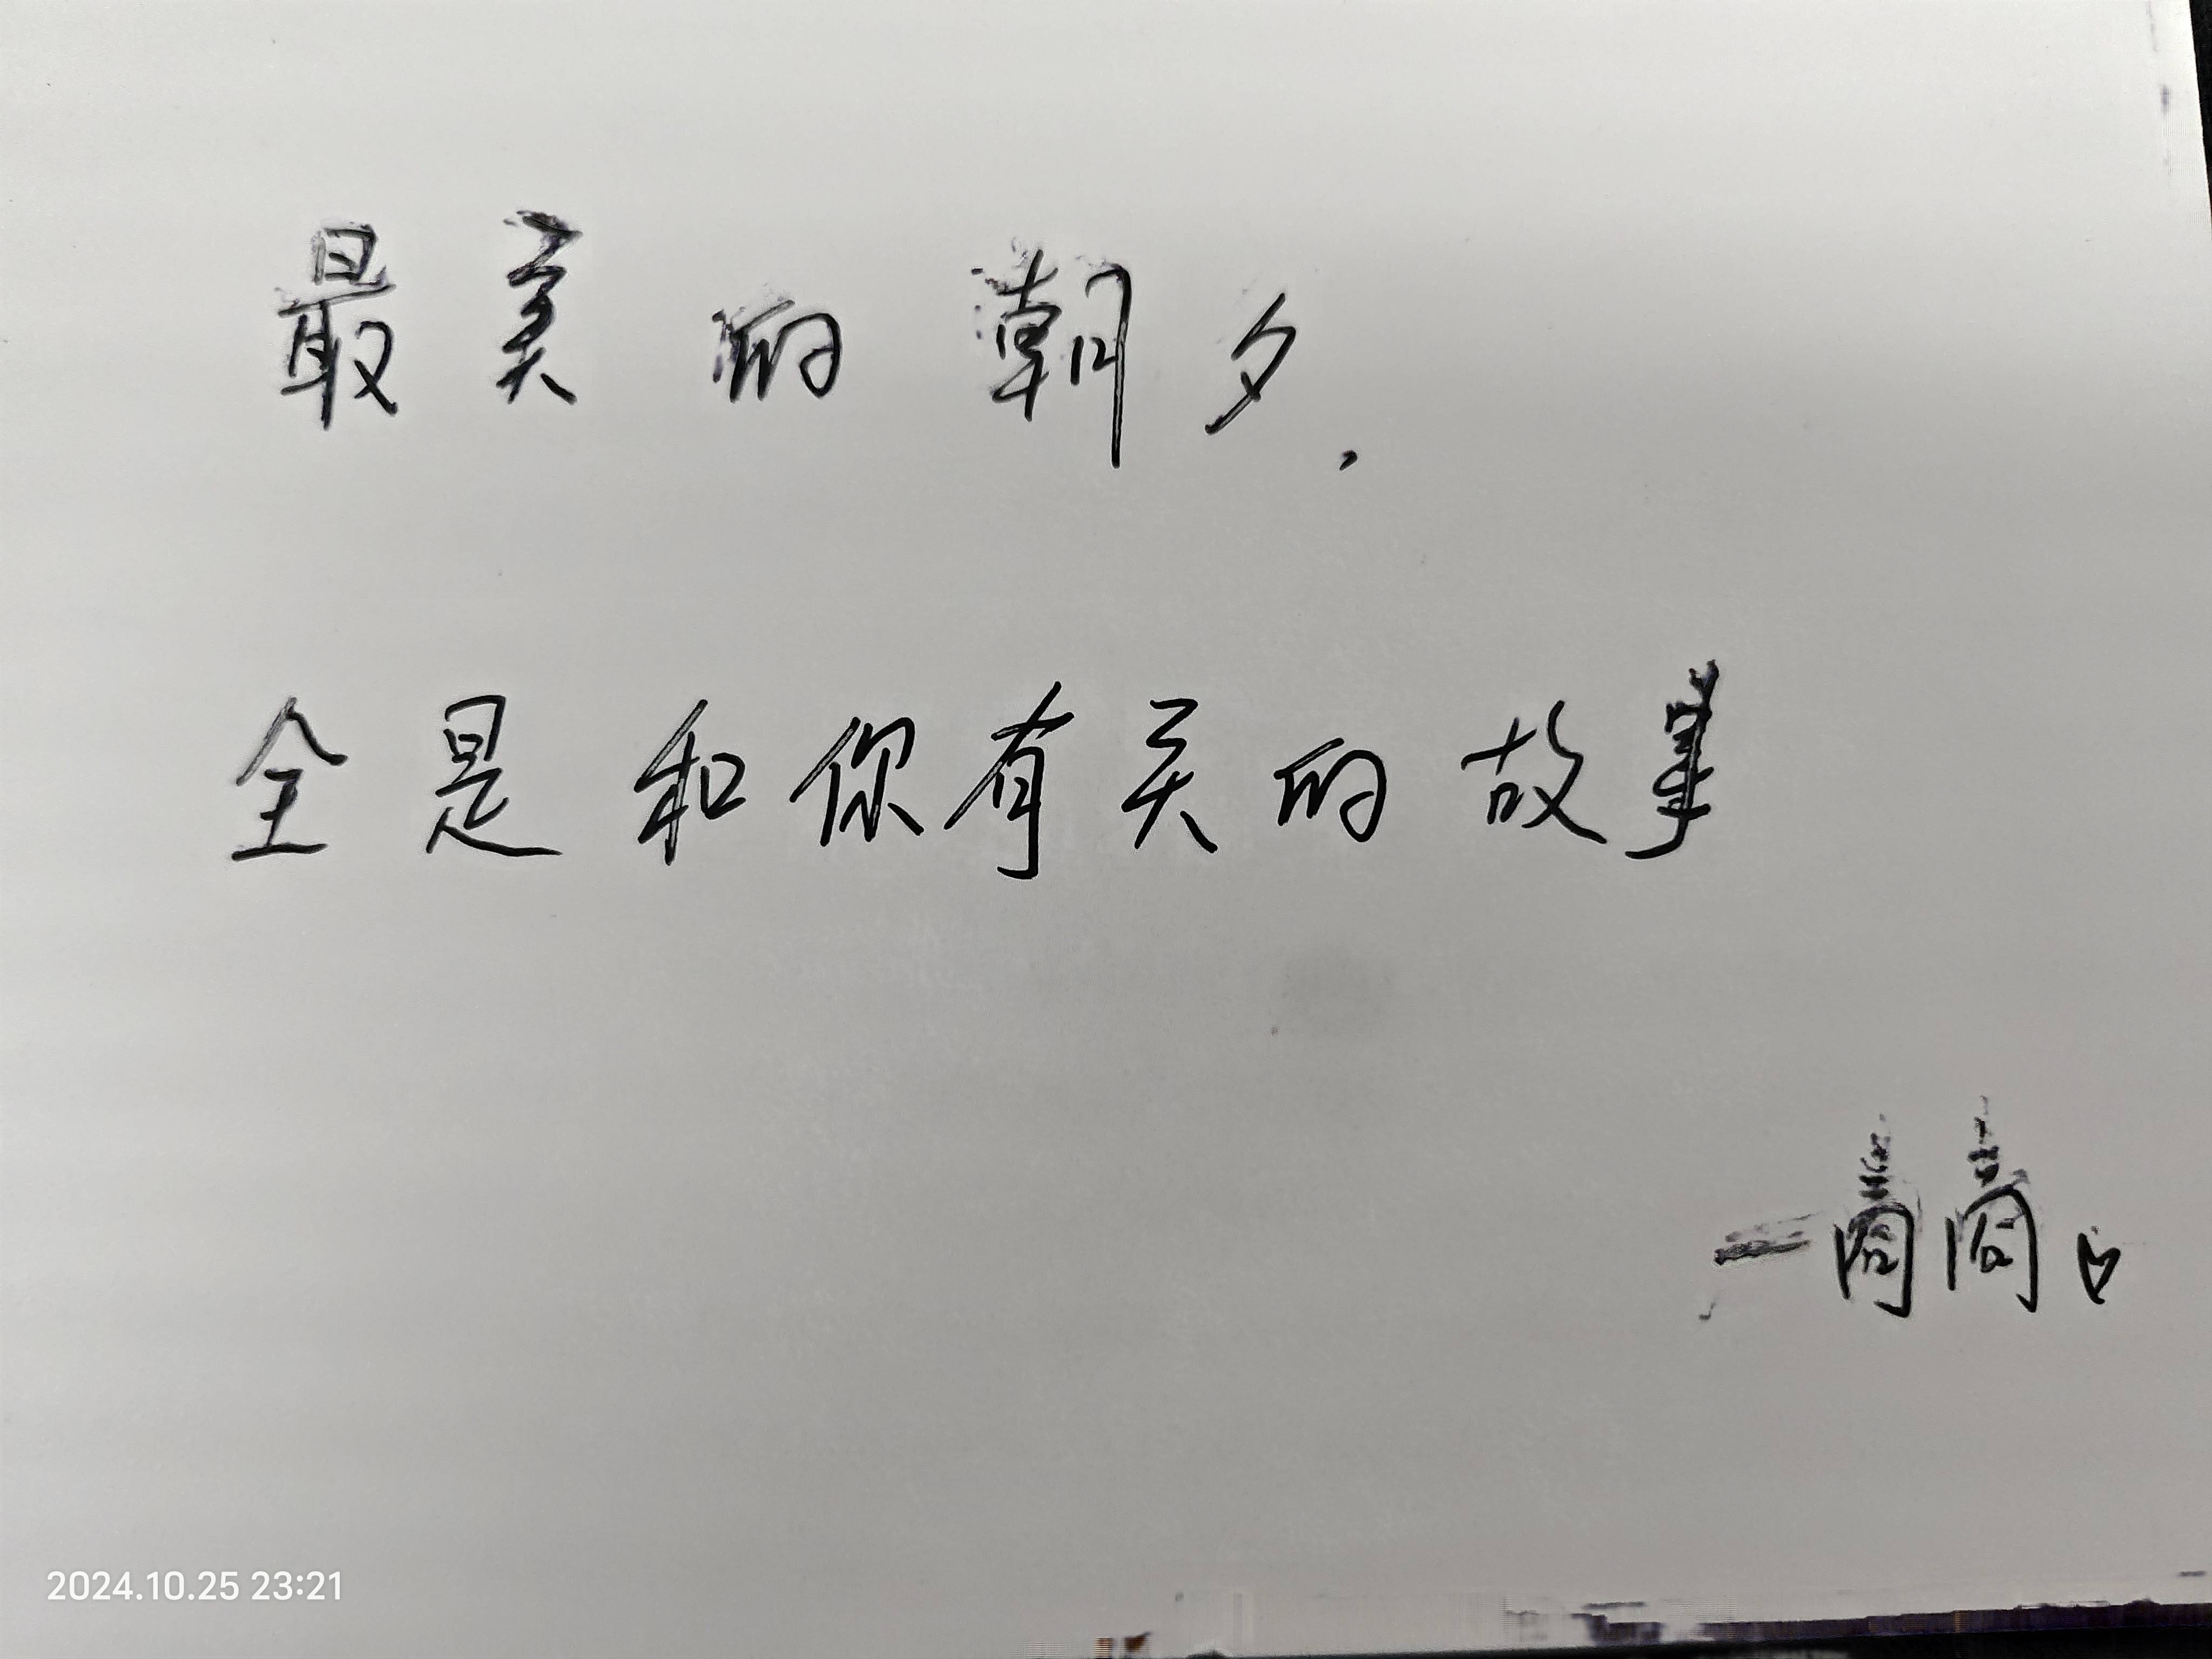 最美的朝夕,
全是和你有关的故事
2024.10.25 23:21